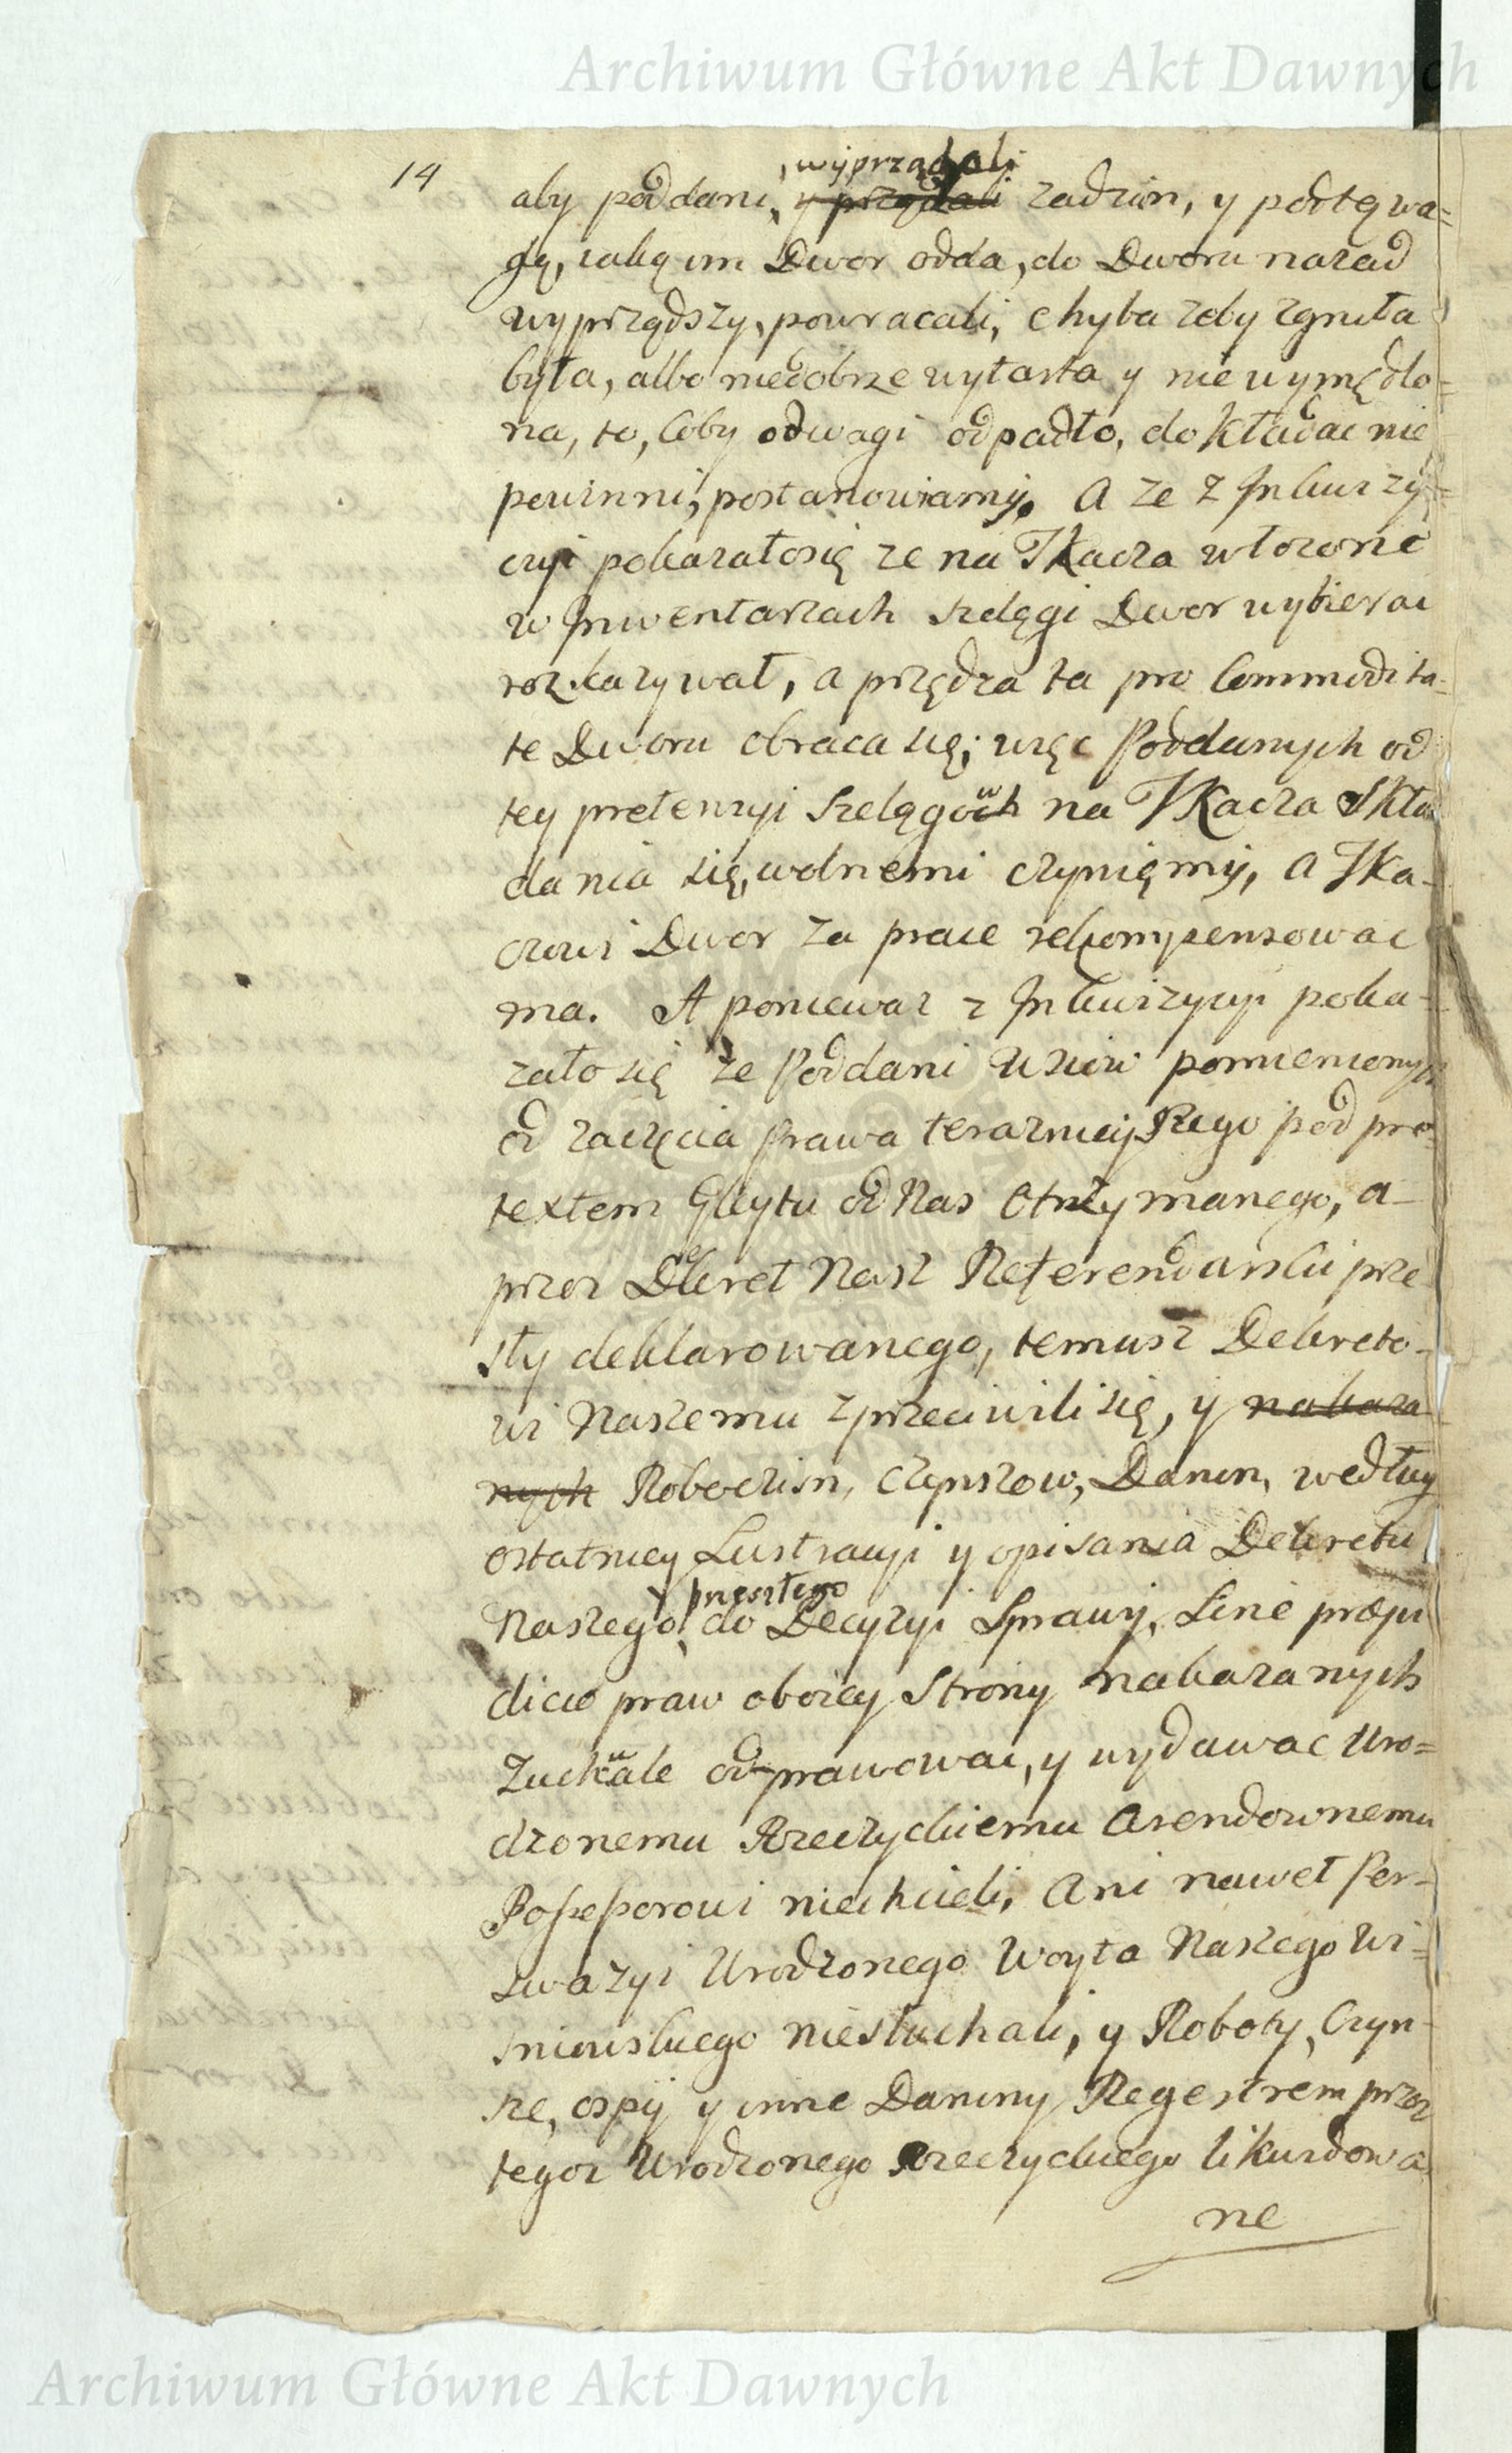 Archiwum Główne Akt Dawnych
14
wyprządali
aby poddani, y prządali zadzion, y podtę wa=
gę, iaką im Dwor odda, do Dworu nazad
wyprządszy, powracali, chyba zeby zgniła
była, albo niedobrze wytarta y nie wymędlo=
na, to, coby od wagi odpadło, dokładac nie
powinni, postanowiamy. A ze z Inkwizy=
cyi pokazałosię ze na Tkacza włozone
w Inwentarzach szelęgi Dwor wybierac
rozkazywał, a przędza ta pro Commodita-
te Dworu obraca się; więc Poddanych od
tey pretensyi szelągow na Tkacza skła
dania się, wolnemi czynięmy, a Tka-
czowi Dwor za prace rekompensowac
ma. A poniewaz z Inkwizycyi poka-
zało się ze Poddani Wsiow pomienionych
od zaczęcia prawa terazniejszego pod pre-
textem Gleytu od Nas otrzymanego, a
przez Dekret Nasz Referendarski prze
sły deklarowanego, temusz Dekreto-
wi Naszemu zprzeciwili się, y nakaza
nych Roboczizn, Czynszow, Danin, według
ostatniey Lustracyi y opisania Dekretu
przeszłego
Naszego, do Decyzyi Sprawy, Sine præju
dicio praw oboiey Strony nakazanych
Zuchwale odprawowac, y wydawac Uro=
dzonemu Rzeczyckiemu Arendownemu
Possessorowi niechcieli, Ani nawet Per-
swazyi Urodzonego Woyta Naszego Wi=
sniewskiego niesłuchali, y Roboty, Czyn-
sze, ospy y inne Daniny Regestrem przez
tegoz Urodzonego Rzeczyckiego likwidowa
ne
Archiwum Główne Akt Dawnych